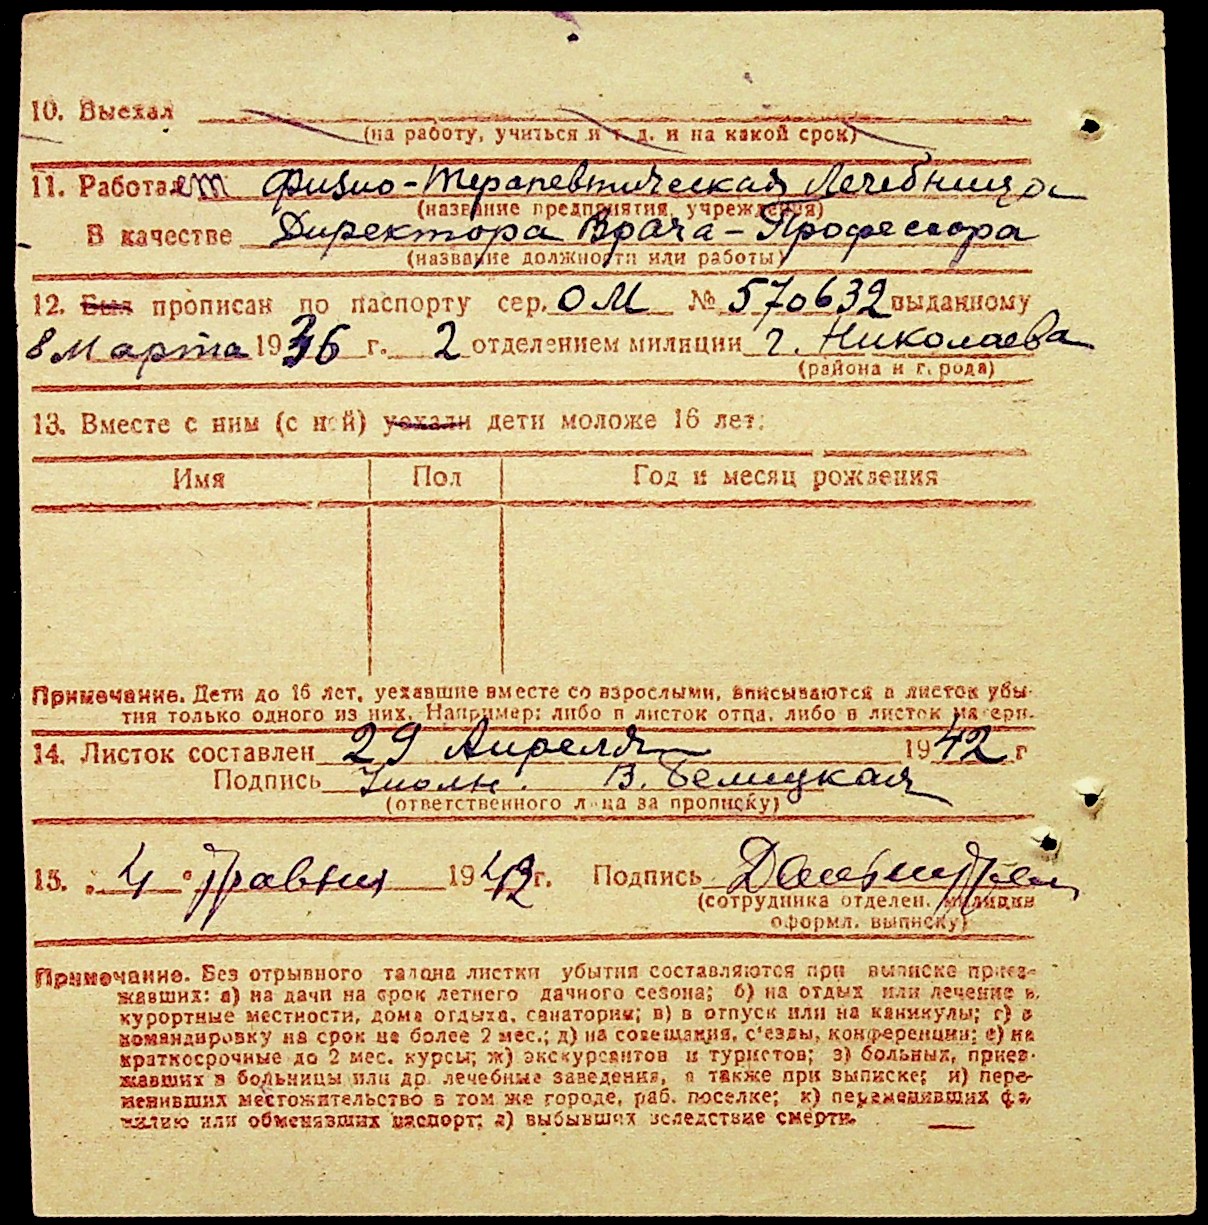 10. Выехал
(на работу, учиться и т. д. и на какой срок)
11. Работает Физио-Терапевтическая Лечебница
(название предприятия, учреждения)
В качестве Директора Врача-Профессора
(название должности или работы)
12. Был прописан по паспорту сер. ОМ № 570632 выданному
8 Марта 1936 г. 2 отделением милиции г. Николаева
(района и города)
13. Вместе с ним (с ней) уехали дети моложе 16 лет:
Имя Пол Год и месяц рождения
Примечание. Дети до 16 лет, уехавшие вместе со взрослыми, вписываются в листок убы-
тия только одного из них. Например: либо в листок отца, либо в листок матери.
14. Листок составлен 29 Апреля 1942 г
Подпись Уполн. В. Белицкая
(ответственного лица за прописку)
15. „4“ Травня 1942 г. Подпись
(сотрудника отделен. милиции
оформл. выписку)
Примечание. Без отрывного талона листки убытия составляются при выписке приез-
жавших: а) на дачи на срок летнего дачного сезона; б) на отдых или лечение в
курортные местности, дома отдыха, санатории; в) в отпуск или на каникулы; г) в
командировку на срок не более 2 мес.; д) на совещания, с'езды, конференции; е) на
краткосрочные до 2 мес. курсы; ж) экскурсантов и туристов; з) больных, приез-
жавших в больницы или др. лечебные заведения, а также при выписке; и) пере-
менивших местожительство в том же городе, раб. поселке; к) переменивших фа-
милию или обменявших паспорт; л) выбывших вследствие смерти.